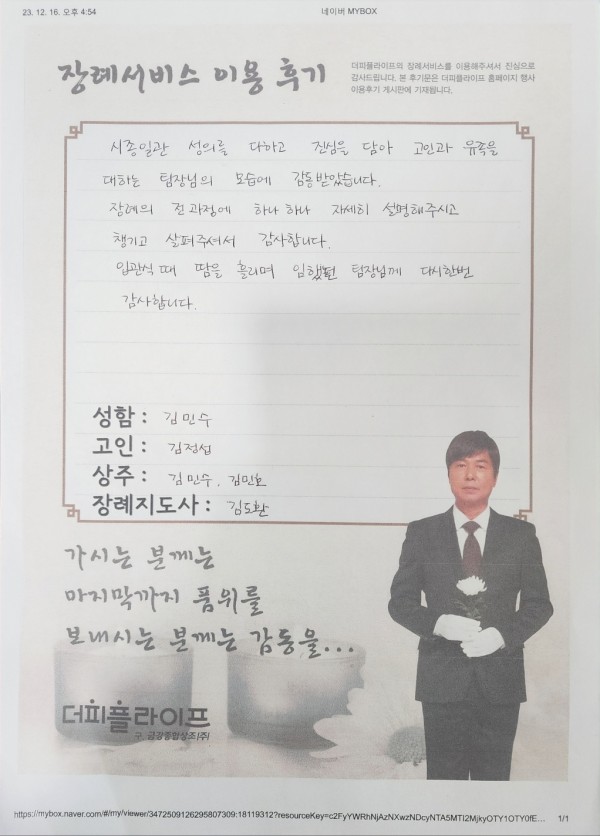 23. 12. 16. 오후 4:54
네이버 MYBOX
장례서비스 이용 후기
더피플라이프의 장례서비스를 이용해주셔서 진심으로
감사드립니다. 본 후기문은 더피플라이프 홈페이지 행사
이용후기 게시판에 기재됩니다.
시종일관 성의를 다하고 진심을 담아 고인과 유족을
대하는 팀장님의 모습에 감동받았습니다.
장례의 전 과정에 하나 하나 자세히 설명해주시고
챙기고 살펴주셔서 감사합니다.
입관식 때 땀을 흘리며 임했던 팀장님께 다시한번
감사합니다.
성함 : 김민수
고인 : 김정섭
상주 : 김민수, 김민호
장례지도사 : 김도환
가시는 분께는
마지막까지 품위를
보내시는 분께는 감동을...
더피플라이프
구. 금강종합상조(주)
https://mybox.naver.com/#/my/viewer/3472509126295807309:18119312?resourceKey=c2FyYWRhNjAzNXwzNDcyNTA5MTI2MjkyOTY1OTY0fE...
1/1